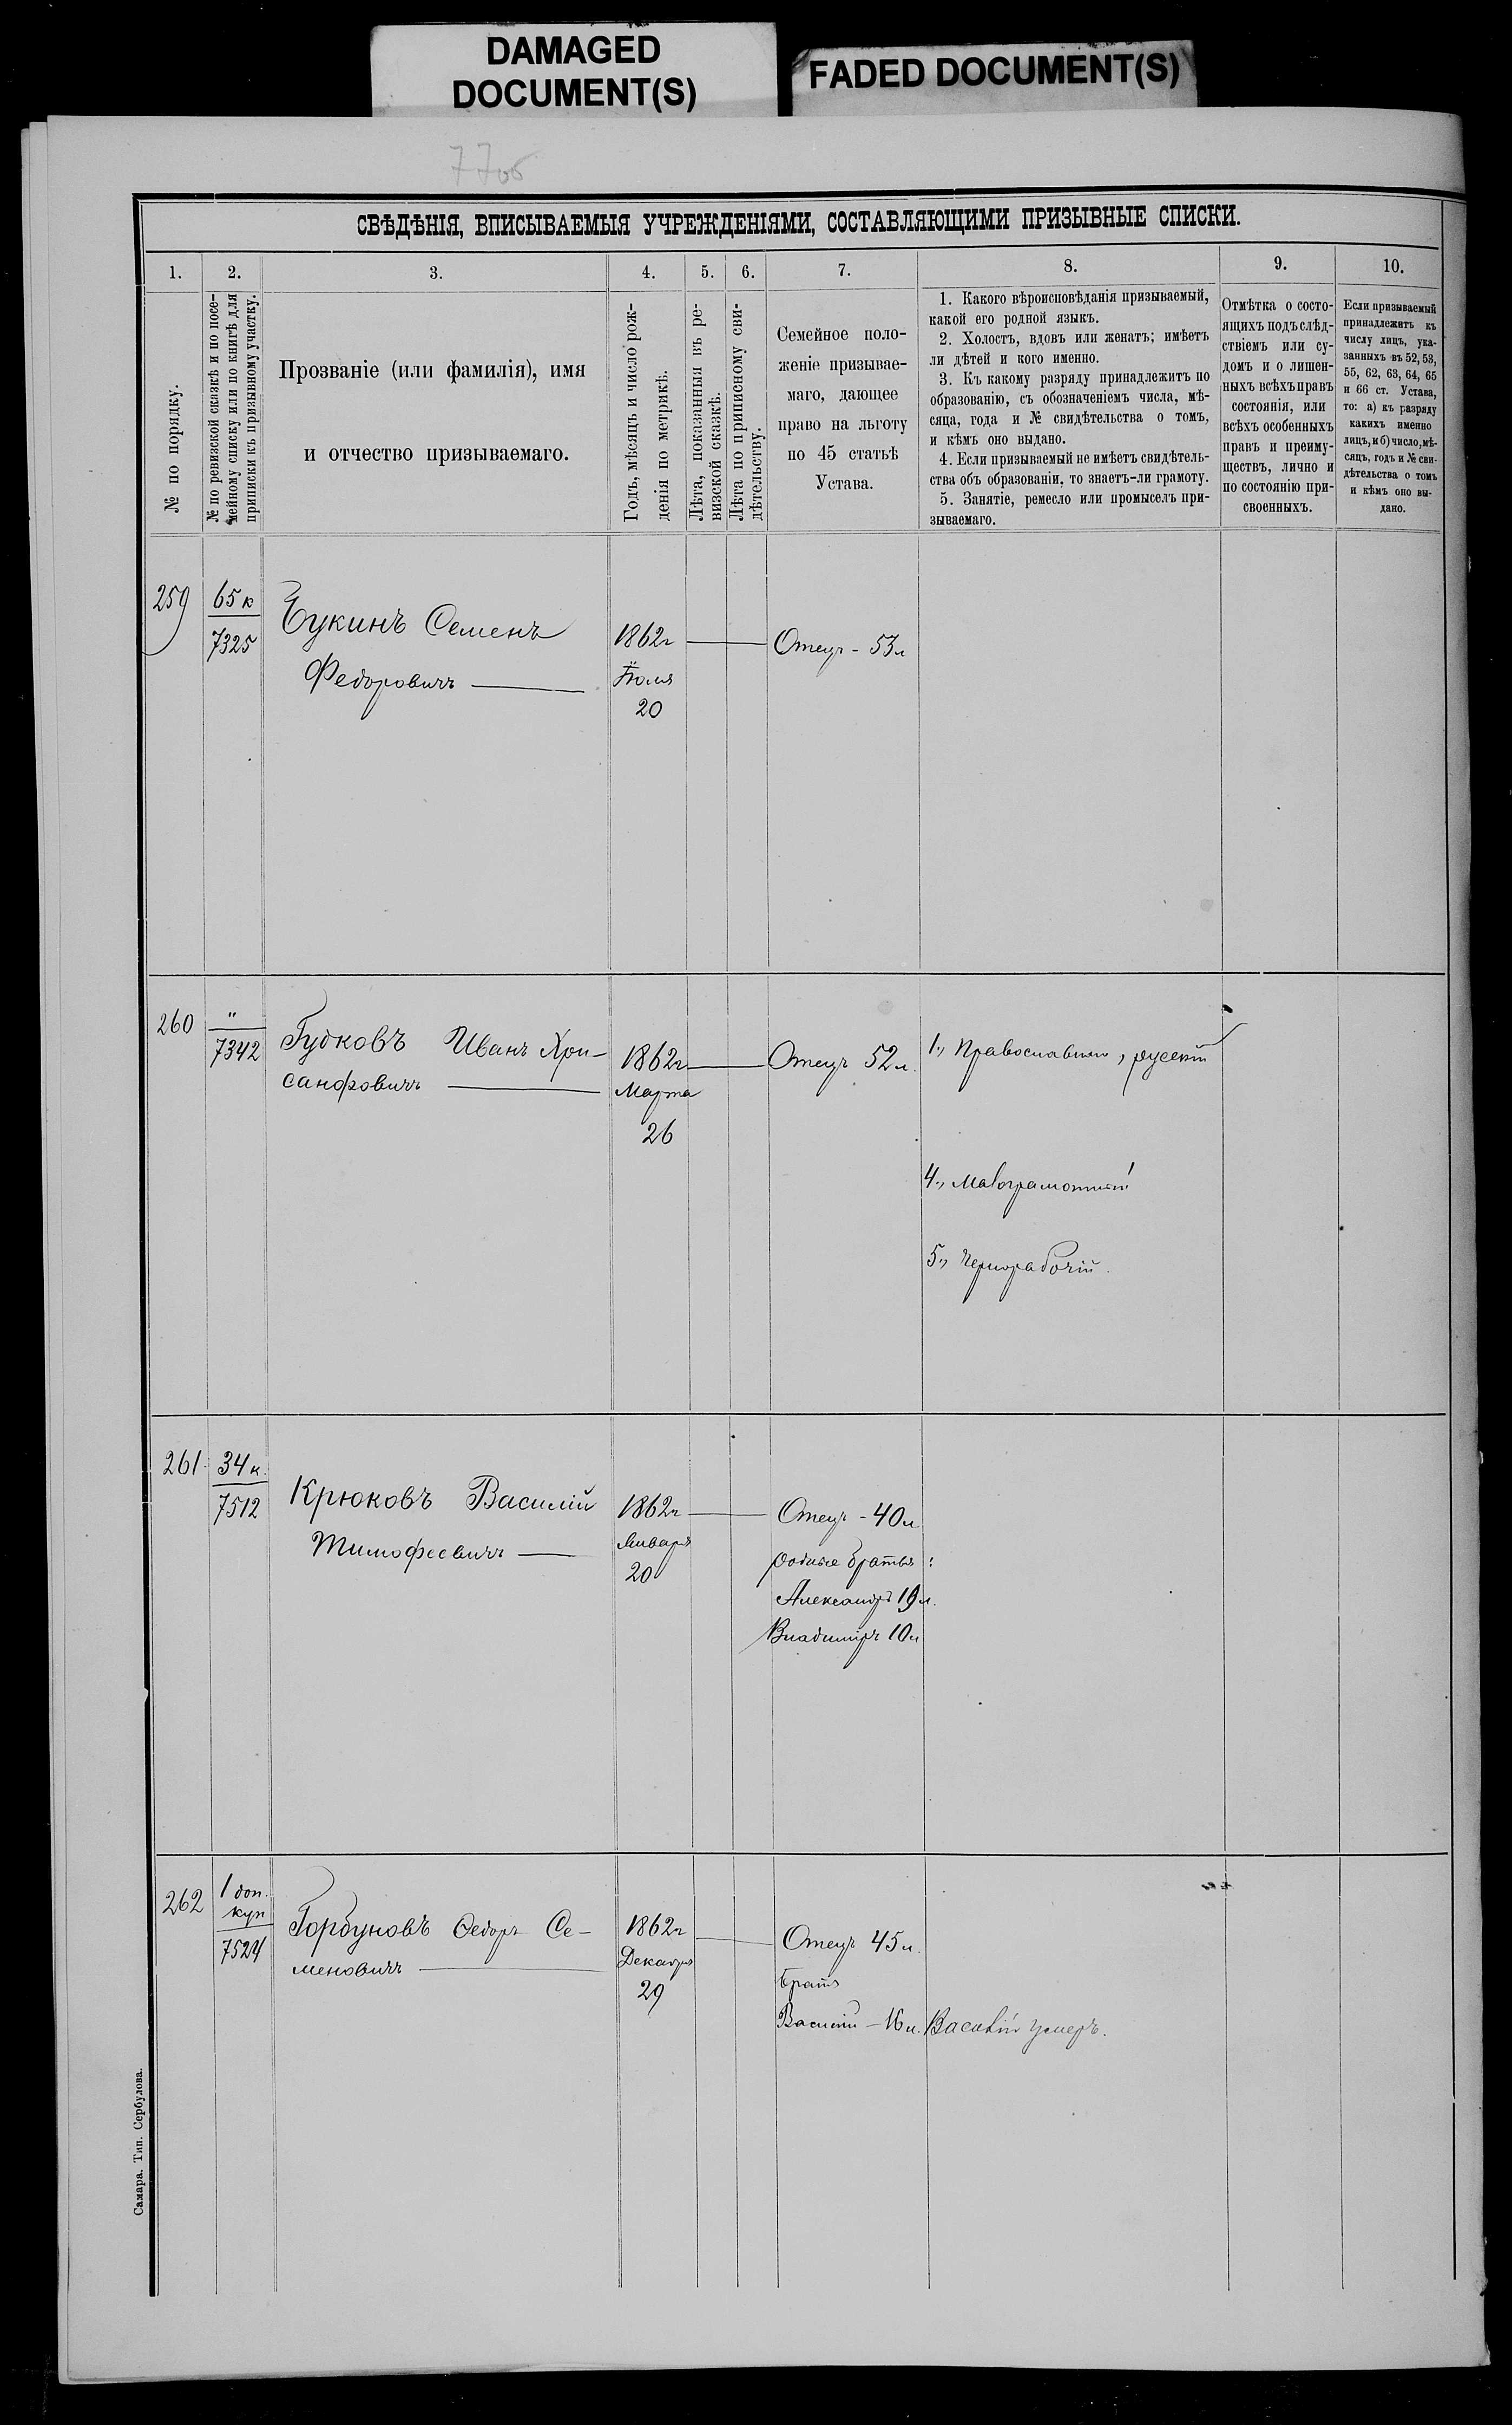 DAMAGED
DOCUMENT(S)
FADED DOCUMENT(S)
77об
СВѢДѢНІЯ, ВПИСЫВАЕМЫЯ УЧРЕЖДЕНІЯМИ, СОСТАВЛЯЮЩИМИ ПРИЗЫВНЫЕ СПИСКИ.
1. 2. 3. 4. 5. 6. 7. 8. 9. 10.
№ по порядку.
№ по ревизской сказкѣ и по посе-
мейному списку или по книгѣ для
приписки къ призывному участку.
Прозваніе (или фамилія), имя
и отчество призываемаго.
Годъ, мѣсяцъ и число рож-
денія по метрикѣ.
Лѣта, показанныя въ ре-
визской сказкѣ.
Лѣта по приписному сви-
дѣтельству.
Семейное поло-
женіе призывае-
маго, дающее
право на льготу
по 45 статьѣ
Устава.
1. Какого вѣроисповѣданія призываемый,
какой его родной языкъ.
2. Холостъ, вдовъ или женатъ; имѣетъ
ли дѣтей и кого именно.
3. Къ какому разряду принадлежитъ по
образованію, съ обозначеніемъ числа, мѣ-
сяца, года и № свидѣтельства о томъ,
и кѣмъ оно выдано.
4. Если призываемый не имѣетъ свидѣтель-
ства объ образованіи, то знаетъ-ли грамоту.
5. Занятіе, ремесло или промыселъ при-
зываемаго.
Отмѣтка о состо-
ящихъ подъ слѣд-
ствіемъ или су-
домъ и о лишен-
ныхъ всѣхъ правъ
состоянія, или
всѣхъ особенныхъ
правъ и преиму-
ществъ, лично и
по состоянію при-
своенныхъ.
Если призываемый
принадлежитъ къ
числу лицъ, ука-
занныхъ въ 52, 53,
55, 62, 63, 64, 65
и 66 ст. Устава,
то: а) къ разряду
какихъ именно
лицъ, и б) число, мѣ-
сяцъ, годъ и № сви-
дѣтельства о томъ
и кѣмъ оно вы-
дано.
259
65 к
7325
Букинъ Семенъ
Федоровичъ
1862г
Іюля
20
Отецъ - 53л
260
"
7342
Гудковъ Иванъ Хри-
санфовичъ
1862г
Марта
26
Отецъ 52л.
1., Православный, русскій
4., Малограмотный
5., Чернорабочій.
261.
34 к.
7512
Крюковъ Василій
Тимофеевичъ
1862г
Января
20
Отецъ - 40л
родные братья:
Александръ 19л.
Владиміръ 10л
262
1 доп.
куп
7524
Горбуновъ Ѳедоръ Се-
меновичъ
1862г
Декабря
29
Отецъ 45л.
братъ
Василій - 16л. Василій умеръ.
Самара. Тип. Сербулова.